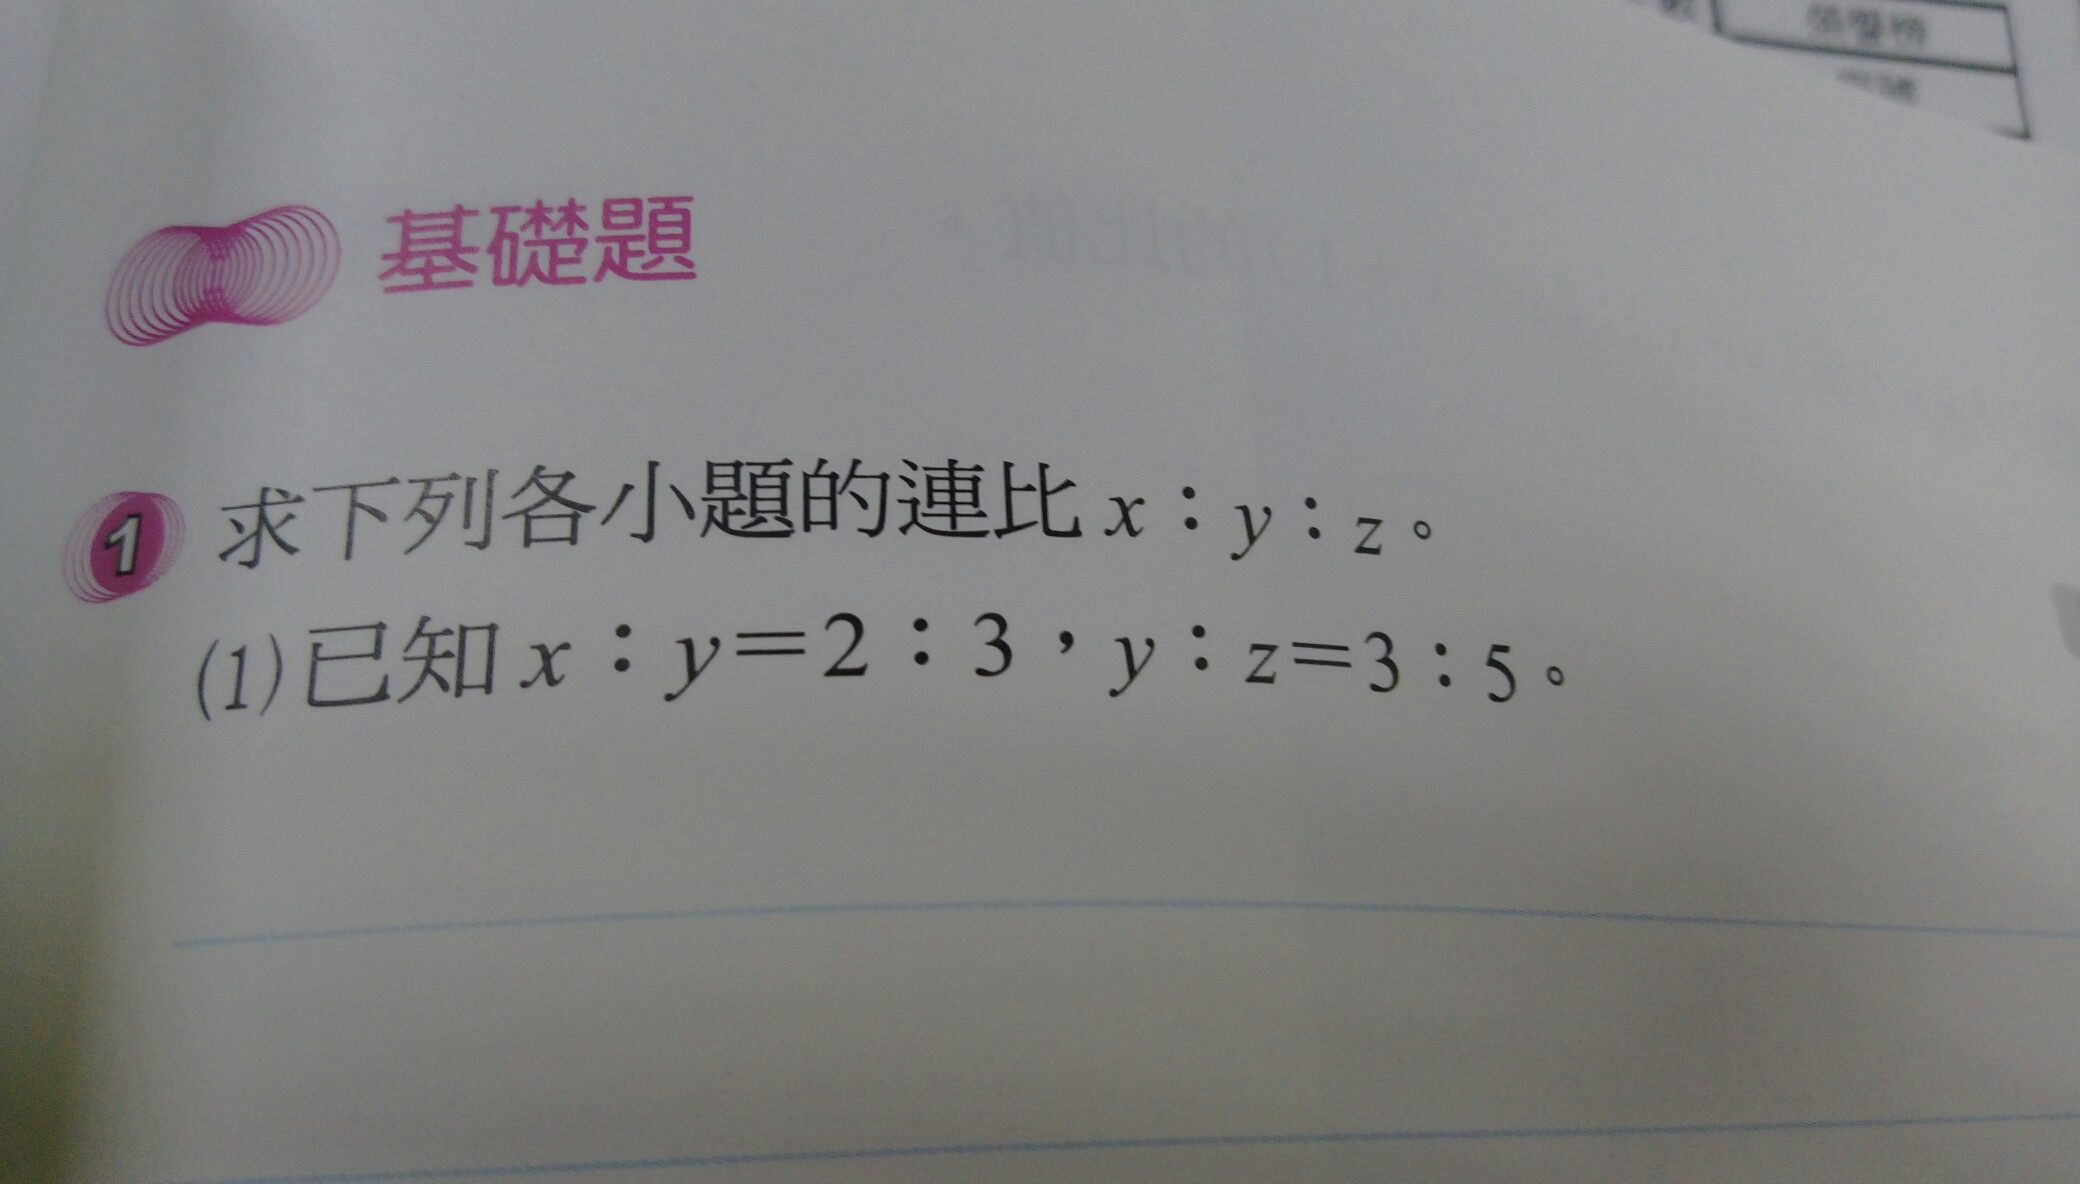 基礎題
1 求下列各小題的連比 x：y：z。
(1)已知 x：y＝2：3，y：z＝3：5。